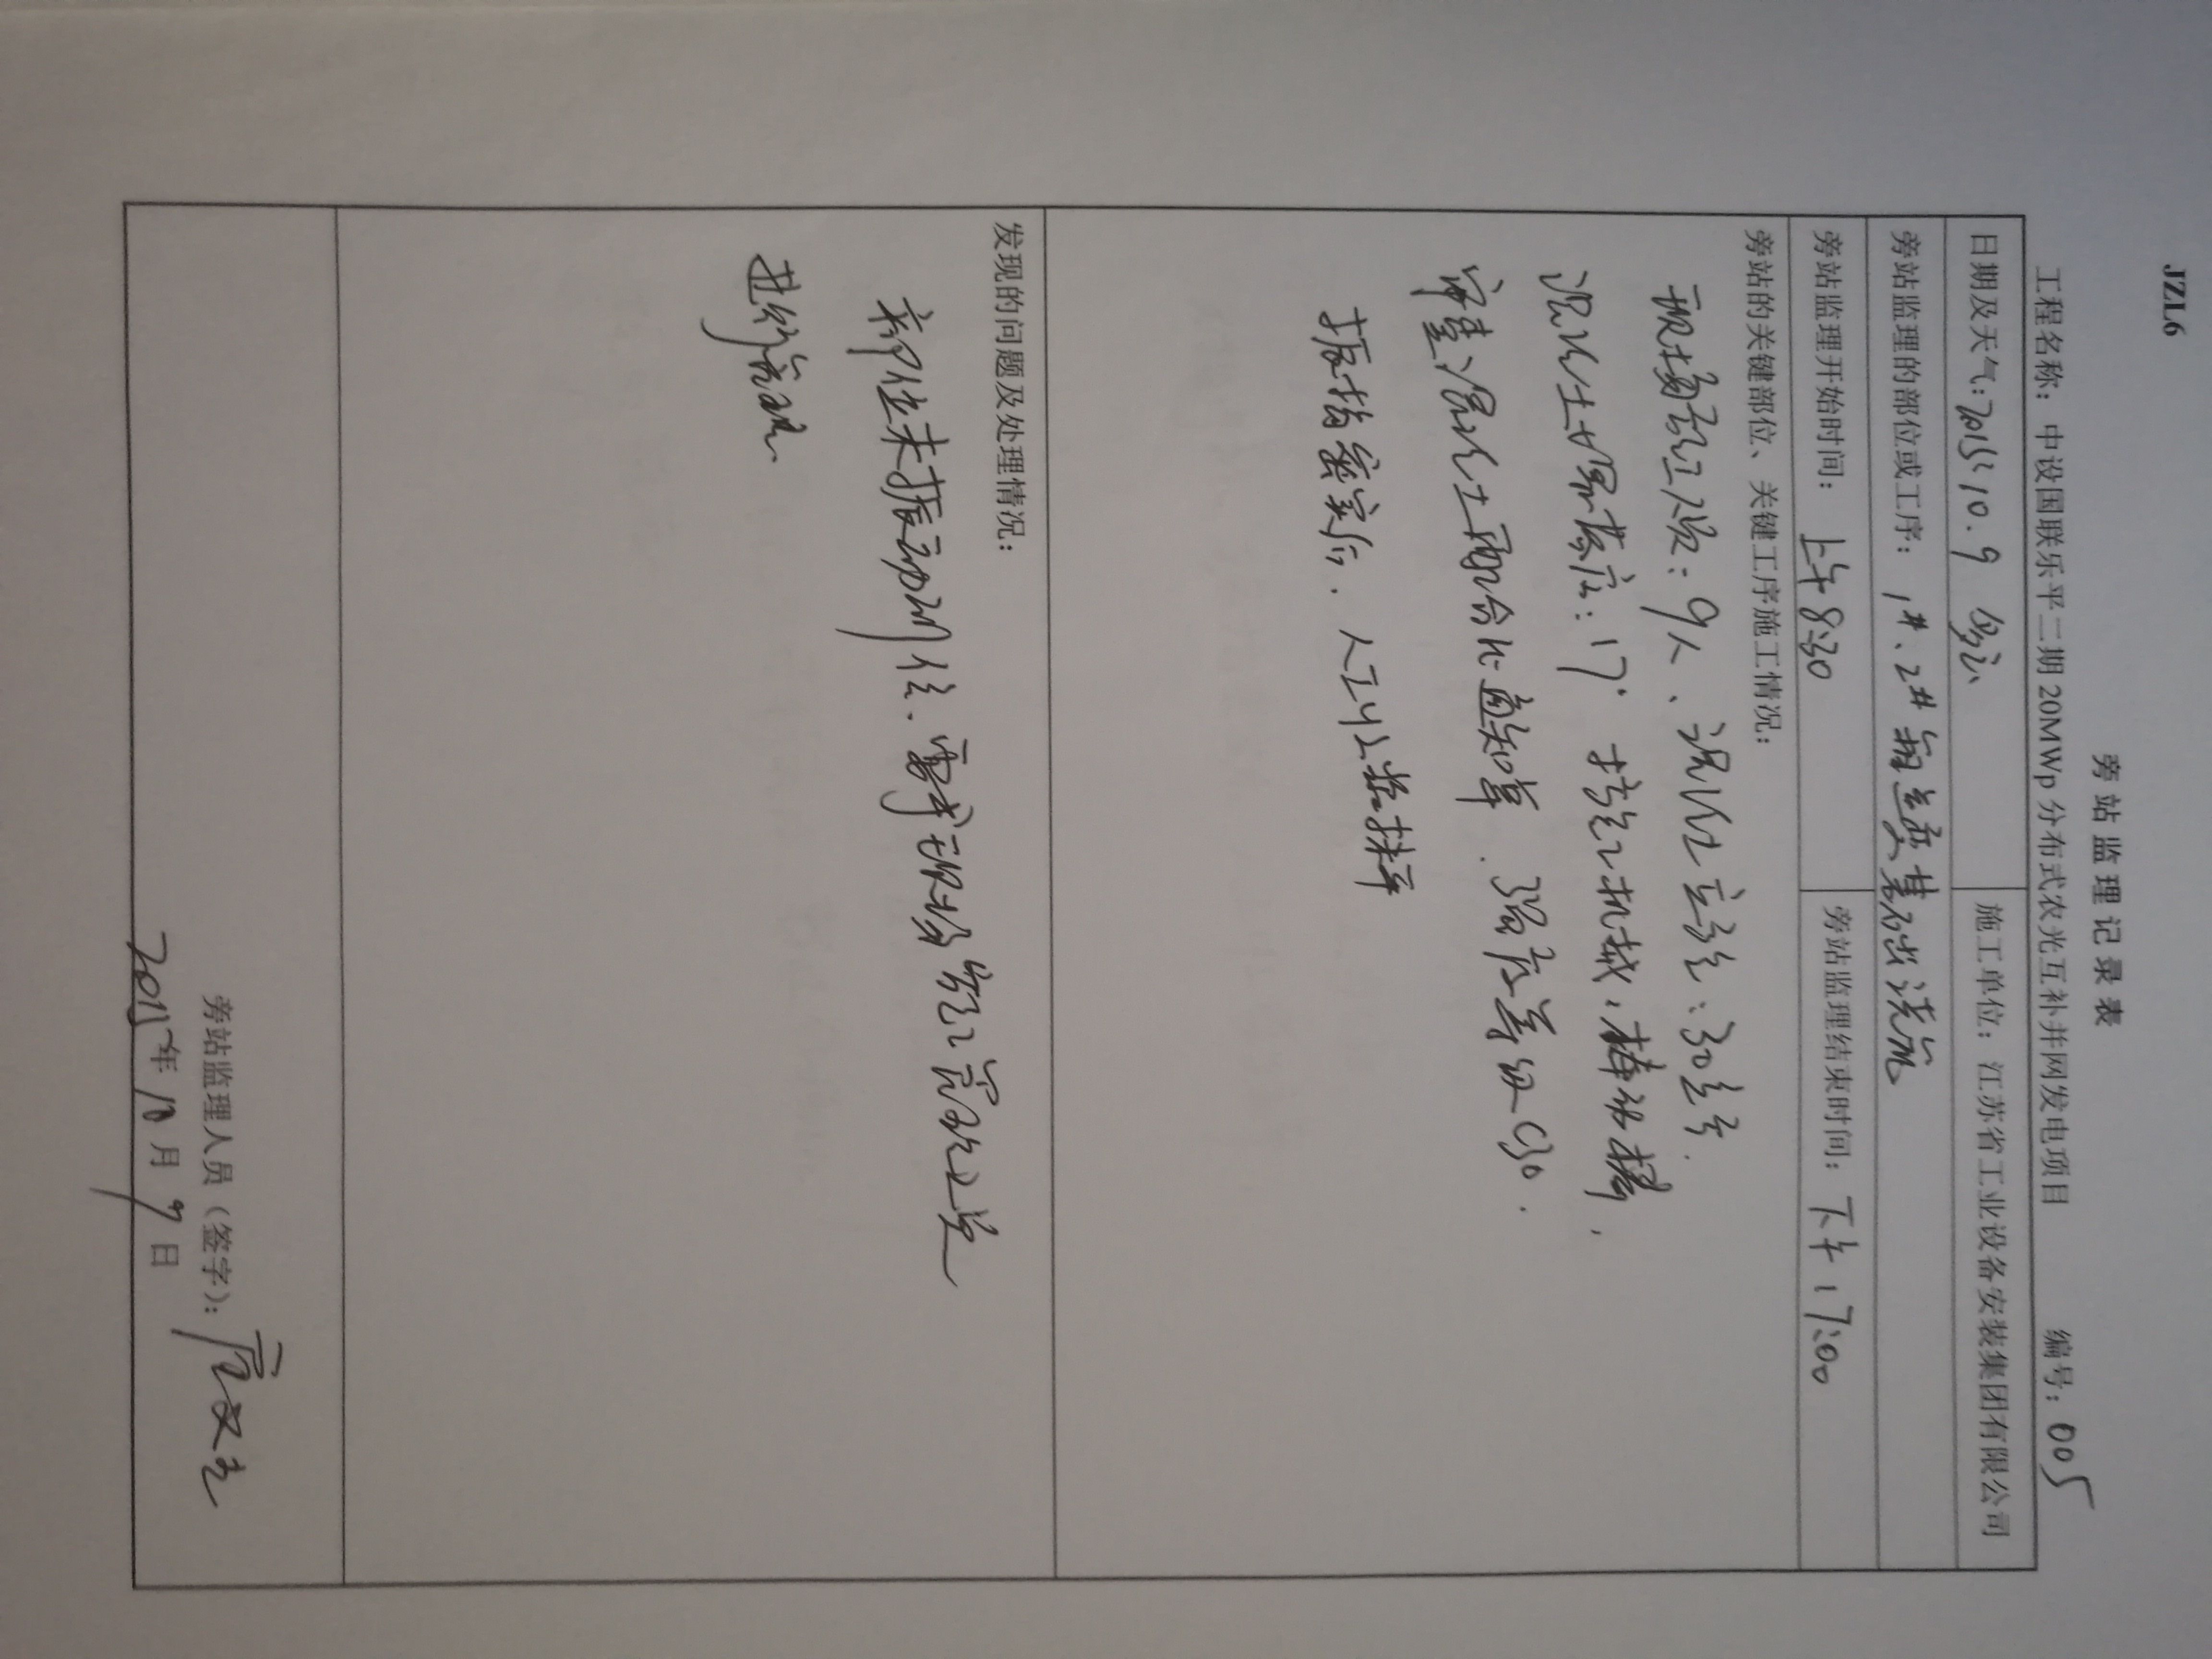 JZL6
旁站监理记录表
工程名称：中设国联乐平二期20MWp分布式农光互补并网发电项目 编号：005
日期及天气：2015.10.9 多云 施工单位：江苏省工业设备安装集团有限公司
旁站监理的部位或工序：1#、2#箱逆变基础浇筑
旁站监理开始时间：上午8:30 旁站监理结束时间：下午17:00
旁站的关键部位、关键工序施工情况：
现场施工人员：9人、混凝土方量：30立方.
混凝土坍落度：17. 振捣机械：棒动棒，
审查混凝土配合比通知单. 强度等级C30.
振捣密实后. 人工收浆抹平
发现的问题及处理情况：
部位未振动到位. 要求现场施工管理人员
进行
旁站监理人员（签字）：
2015年10月9日